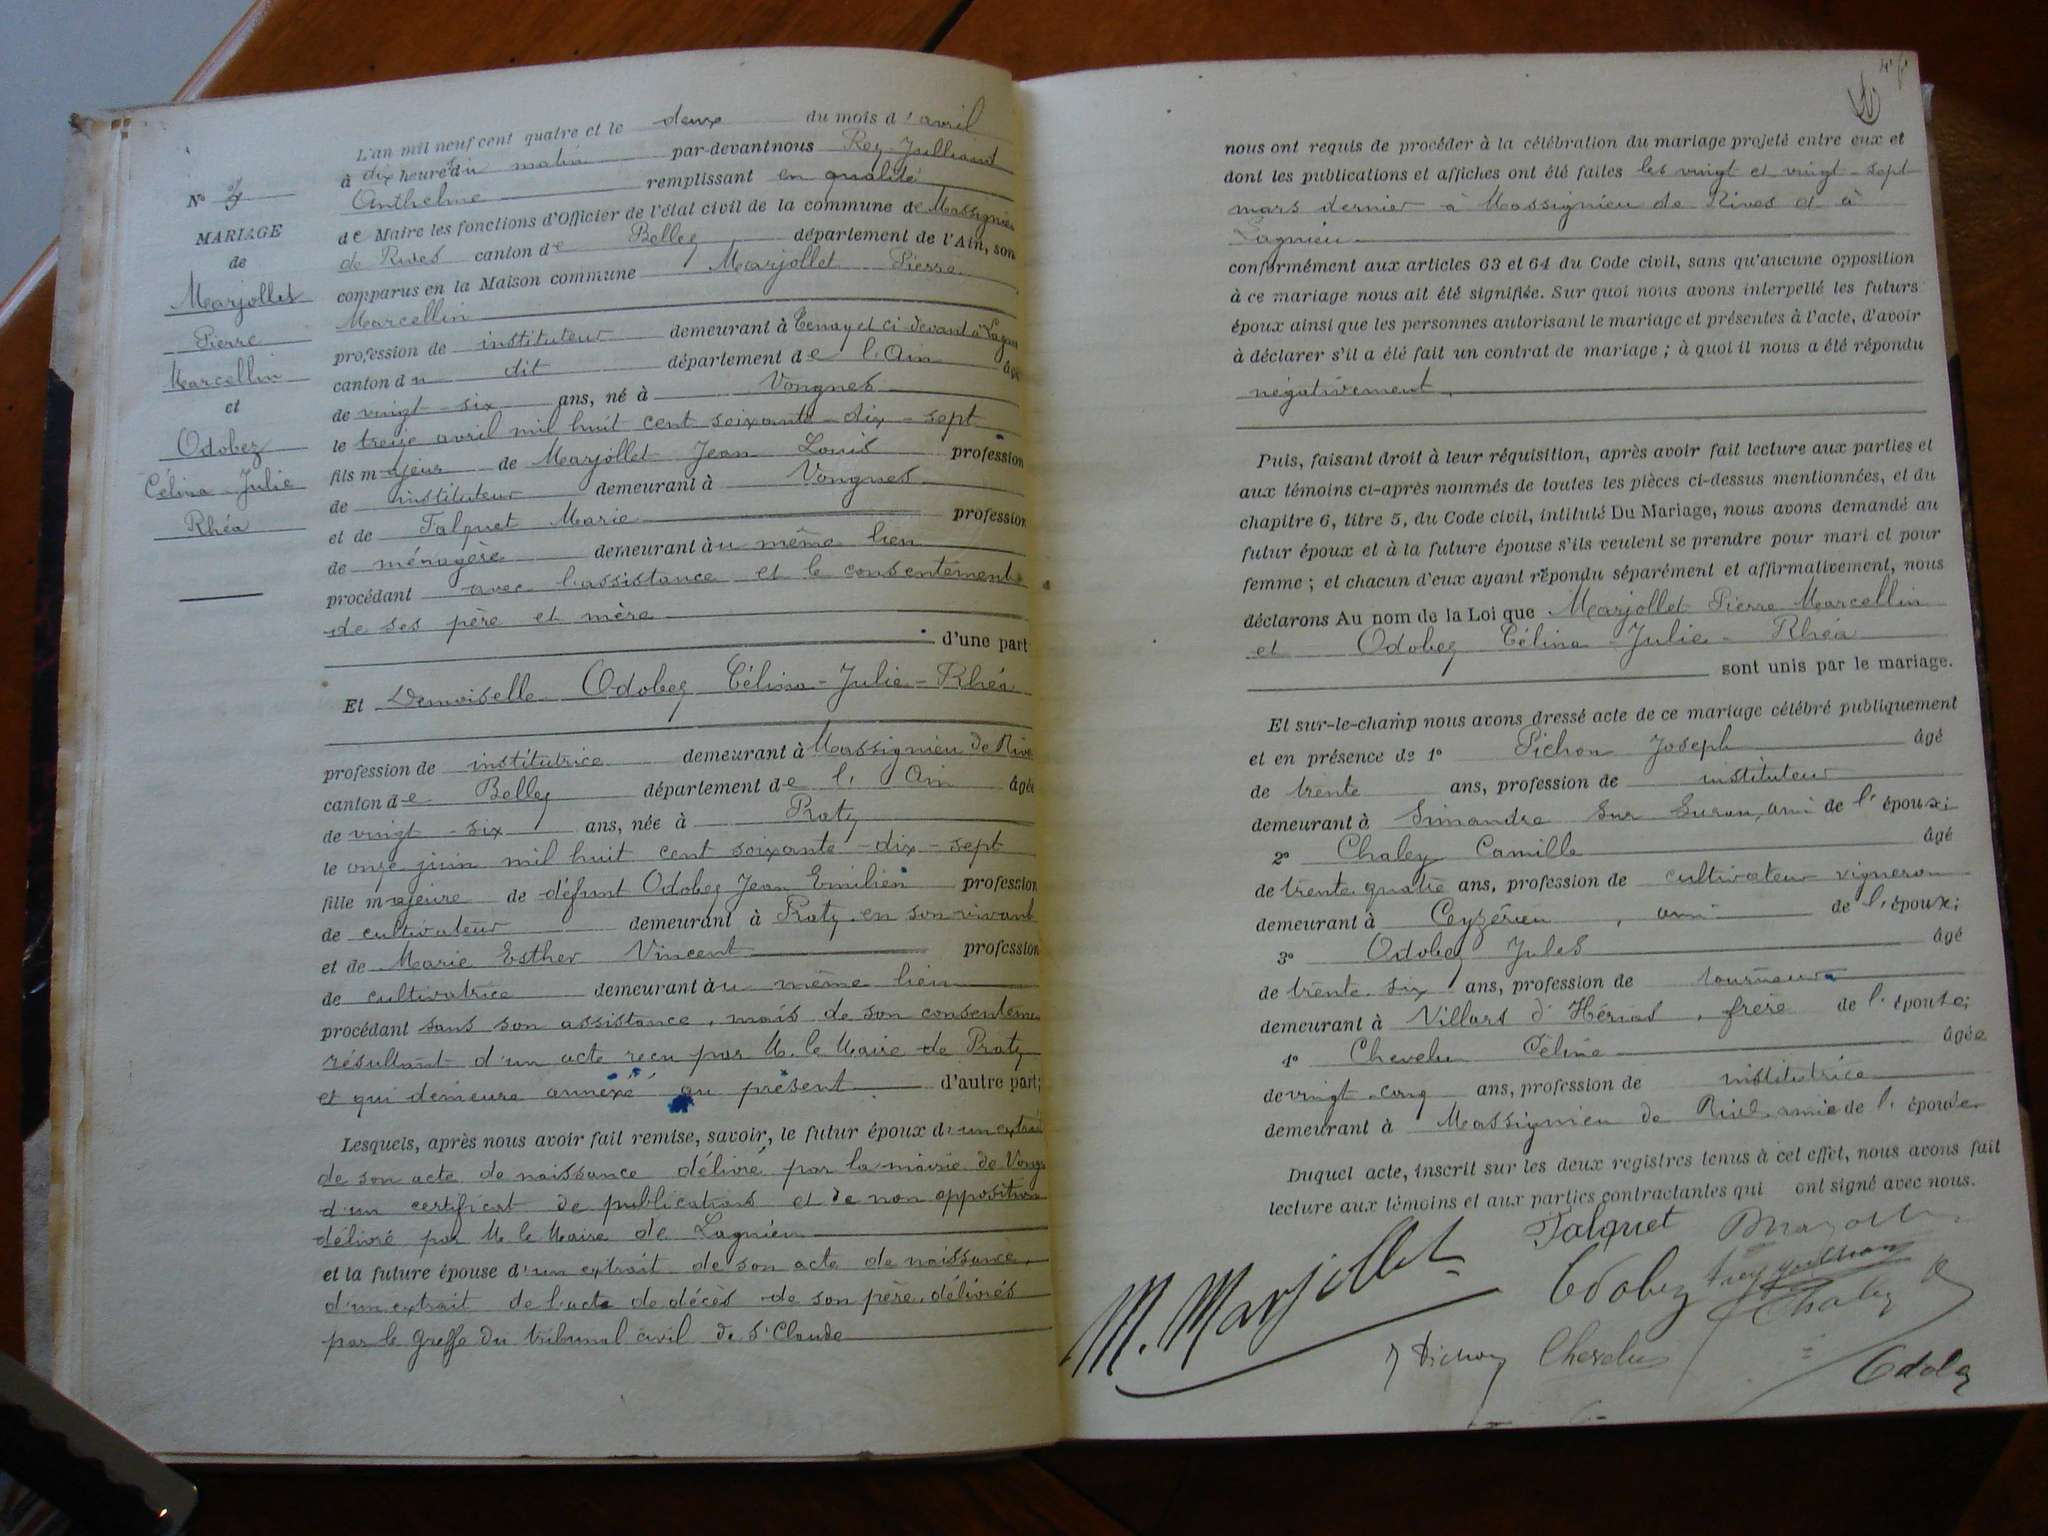 N°
MARIAGE
de
Marjollet
Pierre
Marcellin
et
Odobez
Célina Julie
Rhéa
L'an mil neuf cent quatre et le deux du mois d'avril
à dix heure du matin par-devant nous Rey-Julliand
Anthelme remplissant en qualité
de Maire les fonctions d'Officier de l'état civil de la commune de Massignieu
de Rives canton de Belley département de l'Ain, son
comparus en la Maison commune Marjollet Pierre
Marcellin
profession de instituteur demeurant à Tenay et ci devant à
canton du dit département de l'Ain âgé
de vingt-six ans, né à Vongnes
le treize avril mil huit cent soixante-dix-sept
fils majeur de Marjollet Jean Louis profession
de instituteur demeurant à Vongnes
et de Falquet Marie profession
de ménagère demeurant au même lieu
procédant avec l'assistance et le consentement
de ses père et mère
d'une part
Et Demoiselle Odobez Célina-Julie-Rhéa
profession de institutrice demeurant à Massignieu de Rive
canton de Belley département de l'Ain âgée
de vingt-six ans, née à Pratz
le onze juin mil huit cent soixante-dix-sept
fille majeure de défunt Odobez Jean Emilien profession
de cultivateur demeurant à Pratz en son vivant
et de Marie Esther Vincent profession
de cultivatrice demeurant au même lieu
procédant sans son assistance, mais de son consenteme
résultant d'un acte reçu par M. le Maire de Pratz
et qui demeure annexé au présent d'autre part;
Lesquels, après nous avoir fait remise, savoir, le futur époux d'un extrait
de son acte de naissance délivré par la mairie de Vong
d'un certificat de publications et de non opposition
délivré par M. le Maire de Lagnieu
et la future épouse d'un extrait de son acte de naissance,
d'un extrait de l'acte de décès de son père, délivrés
par le Greffe du tribunal civil de St Claude
nous ont requis de procéder à la célébration du mariage projeté entre eux et
dont les publications et affiches ont été faites les vingt et vingt-sept
mars dernier à Massignieu de Rives et à
Lagnieu
conformément aux articles 63 et 64 du Code civil, sans qu'aucune opposition
à ce mariage nous ait été signifiée. Sur quoi nous avons interpellé les futurs
époux ainsi que les personnes autorisant le mariage et présentes à l'acte, d'avoir
à déclarer s'il a été fait un contrat de mariage; à quoi il nous a été répondu
négativement.
Puis, faisant droit à leur réquisition, après avoir fait lecture aux parties et
aux témoins ci-après nommés de toutes les pièces ci-dessus mentionnées, et du
chapitre 6, titre 5, du Code civil, intitulé Du Mariage, nous avons demandé au
futur époux et à la future épouse s'ils veulent se prendre pour mari et pour
femme; et chacun d'eux ayant répondu séparément et affirmativement, nous
déclarons Au nom de la Loi que Marjollet Pierre Marcellin
et Odobez Célina-Julie-Rhéa
sont unis par le mariage.
Et sur-le-champ nous avons dressé acte de ce mariage célébré publiquement
et en présence de 1° Pichon Joseph âgé
de trente ans, profession de instituteur
demeurant à Simandre sur Suran, ami de l'époux;
2° Chaley Camille âgé
de trente quatre ans, profession de cultivateur vigneron
demeurant à Ceyzérieu, ami de l'époux;
3° Odobez Jules âgé
de trente-six ans, profession de tourneur
demeurant à Villars d'Hérias, frère de l'épouse;
4° Chevelu Céline âgée
de vingt-cinq ans, profession de institutrice
demeurant à Massignieu de Rives amie de l'épouse.
Duquel acte, inscrit sur les deux registres tenus à cet effet, nous avons fait
lecture aux témoins et aux parties contractantes qui ont signé avec nous.
Falquet
M. Marjollet Odobez Chaley
J Pichon Chevelu Odobez